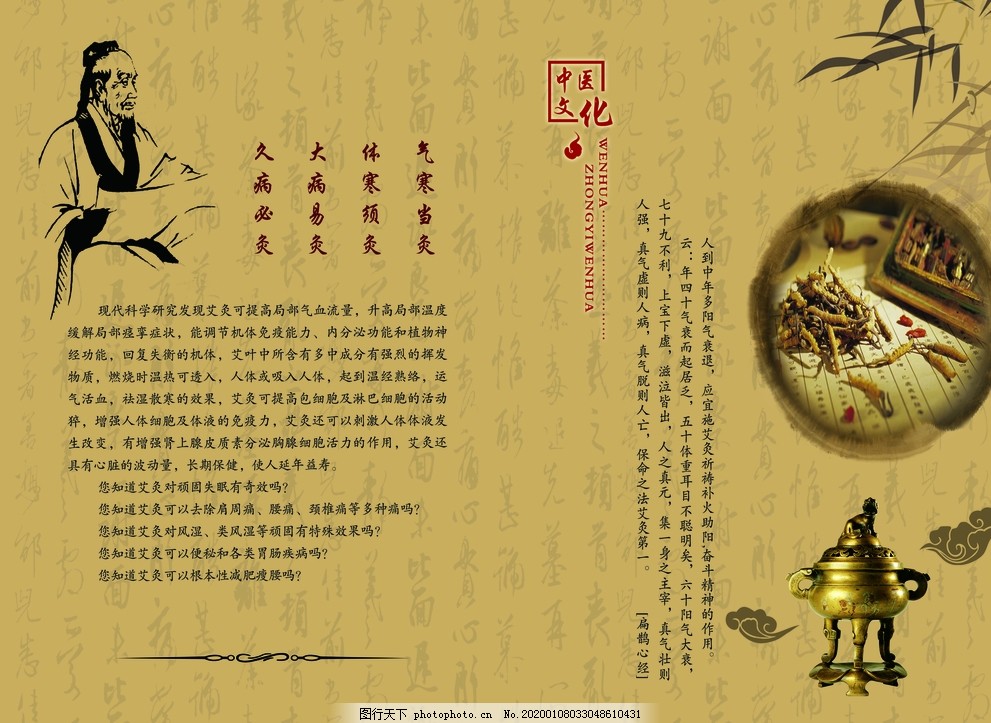 气寒当灸
体寒须灸
大病易灸
久病必灸
现代科学研究发现艾灸可提高局部气血流量，升高局部温度
缓解局部痉挛症状，能调节机体免疫能力、内分泌功能和植物神
经功能，回复失衡的机体，艾叶中所含有多中成分有强烈的挥发
物质，燃烧时温热可透入，人体或吸入人体，起到温经熟络，运
气活血，祛湿散寒的效果，艾灸可提高包细胞及淋巴细胞的活动
猝，增强人体细胞及体液的免疫力，艾灸还可以刺激人体体液发
生改变，有增强肾上腺皮质素分泌胸腺细胞活力的作用，艾灸还
具有心脏的波动量，长期保健，使人延年益寿。
您知道艾灸对顽固失眠有奇效吗？
您知道艾灸可以去除肩周痛、腰痛、颈椎痛等多种痛吗？
您知道艾灸对风湿、类风湿等顽固有特殊效果吗？
您知道艾灸可以便秘和各类胃肠疾病吗？
您知道艾灸可以根本性减肥瘦腰吗？
中医
文化
WENHUA
ZHONGYIWENHUA
人到中年多阳气衰退，应宜施艾灸祈祷补火助阳,奋斗精神的作用。
云：年四十气衰而起居乏，五十体重耳目不聪明矣，六十阳气大衰，
七十九不利，上宝下虚，滋泣皆出，人之真元，集一身之主宰，真气壮则
人强，真气虚则人病，真气脱则人亡，保命之法艾灸第一。 [扁鹊心经]
图行天下 photophoto.cn No.20200108033048610431